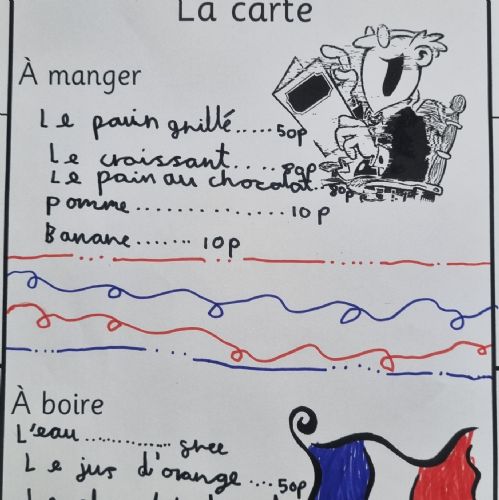 La carte
À manger
Le pain grillé.....50p
Le croissant....80p
Le pain au chocolat..80p
Pomme.............10p
Banane.......10p
À boire
L'eau..............free
Le jus d'orange....50p
Le